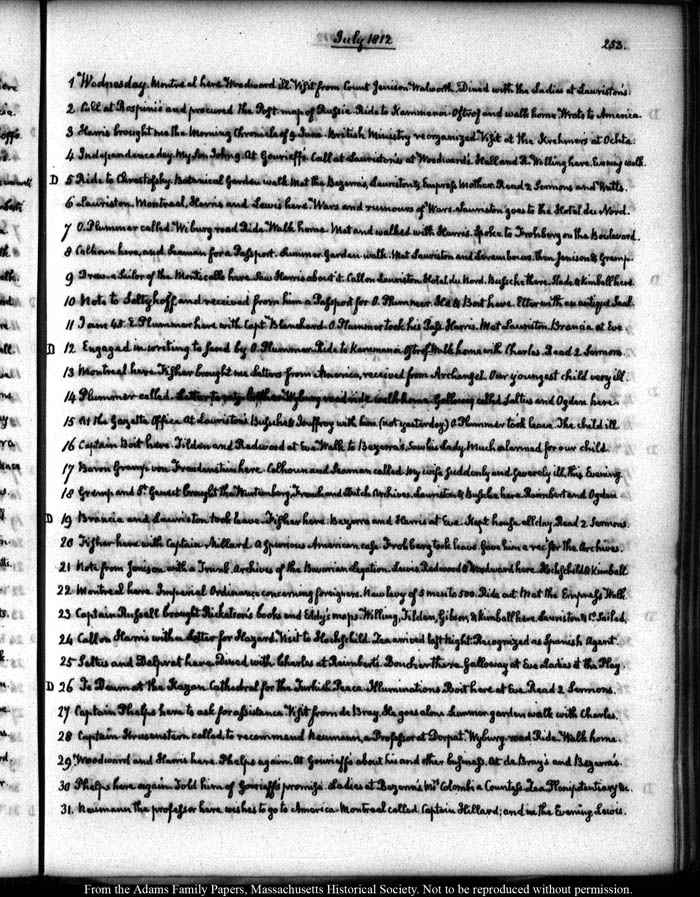 July 1812
253.
1 Wednesday. Montreal here. Woodward ill. Visit from Count Jenison Walworth. Dined with the Ladies at Lauriston's.
2 Call at and procured the Post map of Russia. Ride to Kammenoi Ostrof and walk home. Wrote to America.
3 Harris brought me the Morning Chronicle of 9 June. British Ministry reorganized. Visit at the at Ochta.
4 Independence day. My Son John 9. At Gourieff's. Call at Lauriston's at Woodward's. Hall and R. Willing here. Evening walk.
D 5 Ride to Chrestofsky. Botanical Garden walk. Met the Bezerra's, Lauriston & Empress Mother. Read 2 Sermons and Watts.
6 Lauriston. Montreal, Harris and Lewis here. Wars and rumours of Wars. Lauriston goes to the Hotel du Nord.
7 O. Plummer called. Wiburg road Ride. Walk home. Met and walked with Harris. Spoke to Frohberg on the Boulevard.
8 Calhoun here, and Seaman for a Passport. Summer Garden walk. Met Lauriston and then Jenison & Gremp.
9 Drew a Sailor of the Monticello here. Saw Harris about it. Call on Lauriston Hotel du Nord. Bussche there. Slade & Kimball here.
10 Note to Soltykhoff and received from him a Passport for O. Plummer. He & Boit here. Elter with an antique Seal.
11 I am 45. E. Plummer here with Captn. Blanchard. O. Plummer took his Pass. Harris. Met Lauriston. Brancia at Eve.
D 12 Engaged in writing to send by O. Plummer. Ride to Kamenna Ostrof. Walk home with Charles. Read 2 Sermons.
13 Montreal here. Fisher brought me Letters from America, received from Archangel. Our youngest child very ill.
14 Plummer called. Galloway called. Loltus and Ogden here.
15 At the Gazette Office. At Lauriston's. Bussche & Jouffroy with him (not yesterday) O. Plummer took leave. The child ill.
16 Captain Boit here. Tilden and Redwood at Eve. Walk to Bezerra's. Saw his Lady. Much alarmed for our child.
17 Baron Gremp von Freudenstein here. Calhoun and Seaman called. My wife suddenly and severely ill, this Evening.
18 Gremp and St. Genest brought the Wurtemberg, French and Dutch Archives. Lauriston & Bussche here. Raimbert and Ogden
D 19 Brancia and Lauriston took leave. Fisher here. Bezerra and Harris at Eve. Kept house all day. Read 2 Sermons.
20 Fisher here with Captain Millard. A spurious American case. Frohberg took leave. Gave him a rect. for the Archives.
21 Note from Jenison with a Trunk. Archives of the Bavarian Legation. Lewis, Redwood & Woodward here. Hochschild & Kimball
22 Montreal here. Imperial Ordinance concerning foreigners. New levy of 5 men to 500. Ride out. Met the Empress's Walk.
23 Captain Russell brought Ricketson's books and Eddy's maps. Willing, Tilden, Gibson, & Kimball here. Lauriston & Ca. Sailed.
24 Call on Harris with a Letter for Hazard. Visit to Hochschild. Zea arrived last Night. Recognized as Spanish Agent.
25 Loltus and Delprat here. Dined with Charles at Raimbert's. there. Galloway at Eve. Ladies at the Play.
D 26 Te Deum at the Kazan Cathedral for the Turkish Peace. Illuminations. Boit here at Eve. Read 2 Sermons.
27 Captain Phelps here to ask for assistance. Visit from de Bray. He goes alone. Summer garden walk with Charles.
28 Captain Krusenstern called, to recommend Neumann, a Professor at Dorpat. Wyburg road Ride. Walk home.
29 Woodward and Harris here. Phelps again. At Gourieff's about his and other business. At de Bray's and Bezerra's.
30 Phelps here again. Told him of Gourieff's promise. Ladies at Bezerra's. Mrs. Colombi a Countess. Zea Plenipotentiary &c.
31. Neumann the professor here wishes to go to America. Montreal called. Captain Hillard; and in the Evening Lewis.
From the Adams Family Papers, Massachusetts Historical Society. Not to be reproduced without permission.